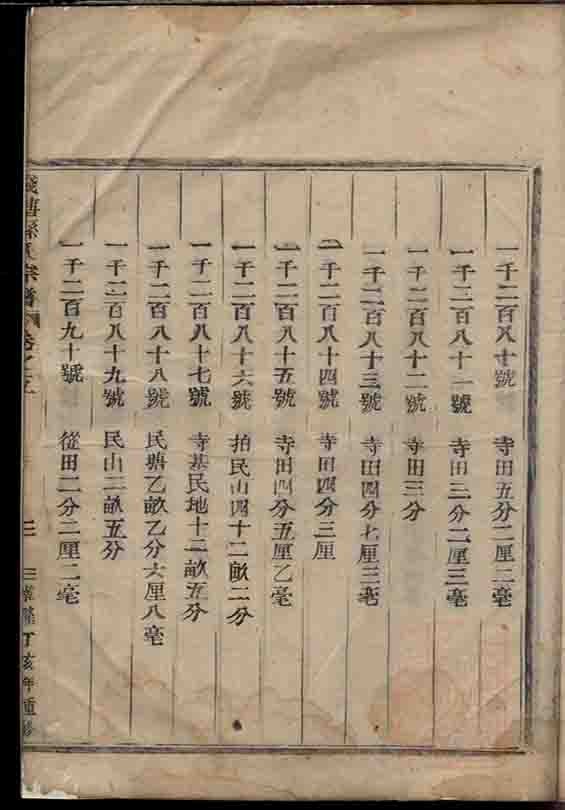 一千二百八十號 寺田五分二厘二毫
一千二百八十一號 寺田三分二厘三毫
一千二百八十二號 寺田三分
一千二百八十三號 寺田四分七厘三毫
一千二百八十四號 寺田四分三厘
一千二百八十五號 寺田四分五厘乙毫
一千二百八十六號 拍民山四十二畝二分
一千二百八十七號 寺基民地十二畝五分
一千二百八十八號 民塘乙畝乙分六厘八毫
一千二百八十九號 民山二畝五分
一千二百九十號 從田二分二厘二毫
宗譜 卷之五 三 隆丁亥年重修